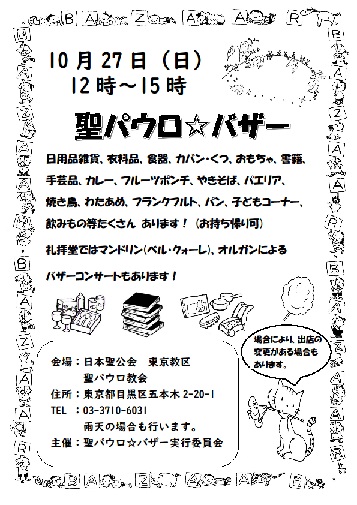 10月27日（日）
12時～15時
聖パウロ☆バザー
日用品雑貨、衣料品、食器、カバン・くつ、おもちゃ、書籍、
手芸品、カレー、フルーツポンチ、やきそば、パエリア、
焼き鳥、わたあめ、フランクフルト、パン、子どもコーナー、
飲みもの等たくさん あります！（お持ち帰り可）
礼拝堂ではマンドリン(ベル・クォーレ)、オルガンによる
バザーコンサートもあります！
場合により、出店の
変更がある場合も
あります。
会場：日本聖公会　東京教区
聖パウロ教会
住所：東京都目黒区五本木2-20-1
TEL ：03-3710-6031
雨天の場合も行います。
主催：聖パウロ☆バザー実行委員会